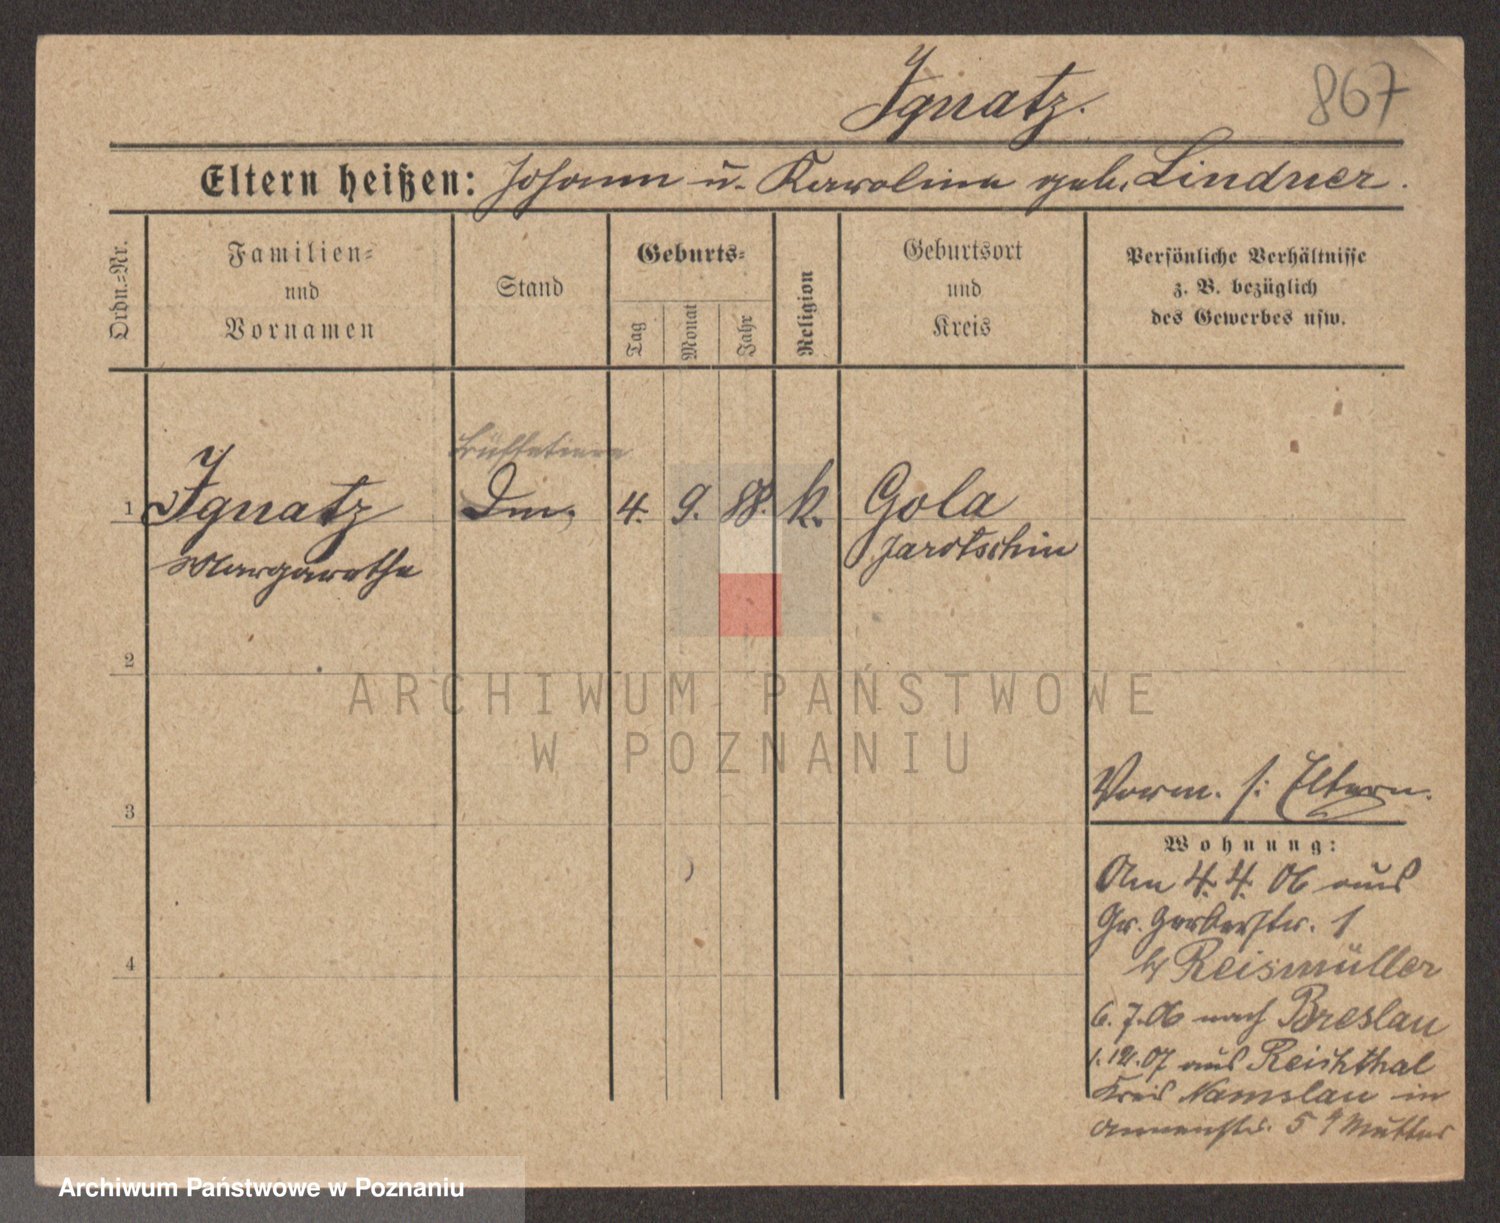 Ignatz.
867
Eltern heißen: Johann u. Karolina geb. Lindner.
Ordn.-Nr.
Familien-
und
Vornamen
Stand
Geburts-
Tag
Monat
Jahr
Religion
Geburtsort
und
Kreis
Persönliche Verhältnisse
z. B. bezüglich
des Gewerbes usw.
Büffetiere
1 Ignatz 4. 9. 88. k. Gola
Margarethe Jarotschin
2
ARCHIWUM PAŃSTWOWE
W POZNANIU
Vorm. s: Eltern.
3
Wohnung:
Am 4. 4. 06 aus
Gr. Gerberstr. 1
b/ Reismüller
4
6. 7. 06 nach Breslau
1. 12. 07 aus Reichthal
Kreis Namslau in
5 Mutter
Archiwum Państwowe w Poznaniu